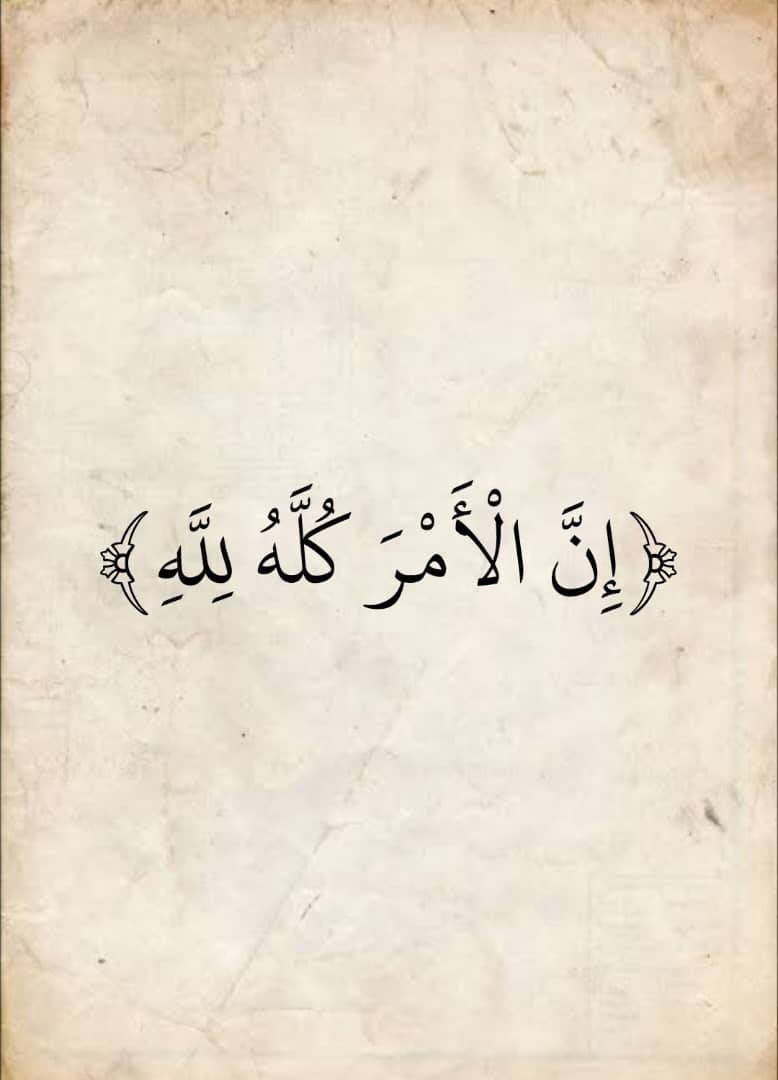 ﴿إِنَّ الْأَمْرَ كُلَّهُ لِلَّهِ﴾